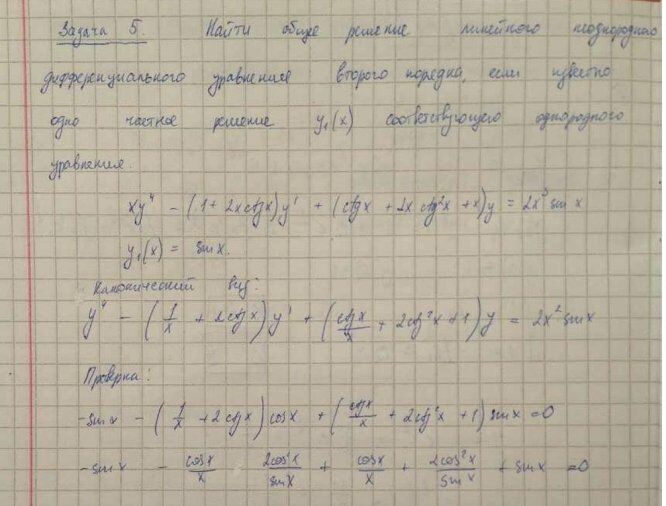 Задача 5. Найти общее решение линейного неоднородного
дифференциального уравнения второго порядка, если известно
одно частное решение y₁(x) соответствующего однородного
уравнения.
xy'' - (1 + 2x ctgx)y' + (ctgx + 2x ctg²x + x)y = 2x³ sin x
y₁(x) = sin x.
Канонический вид:
y'' - (1/x + 2ctg x)y' + (ctgx/x + 2ctg²x + 1)y = 2x² sin x
Проверка:
-sinx - (1/x + 2ctgx)cosx + (ctgx/x + 2ctg²x + 1) sinx = 0
-sinx - cosx/x - 2cos²x/sinx + cosx/x + 2cos²x/sinx + sinx = 0